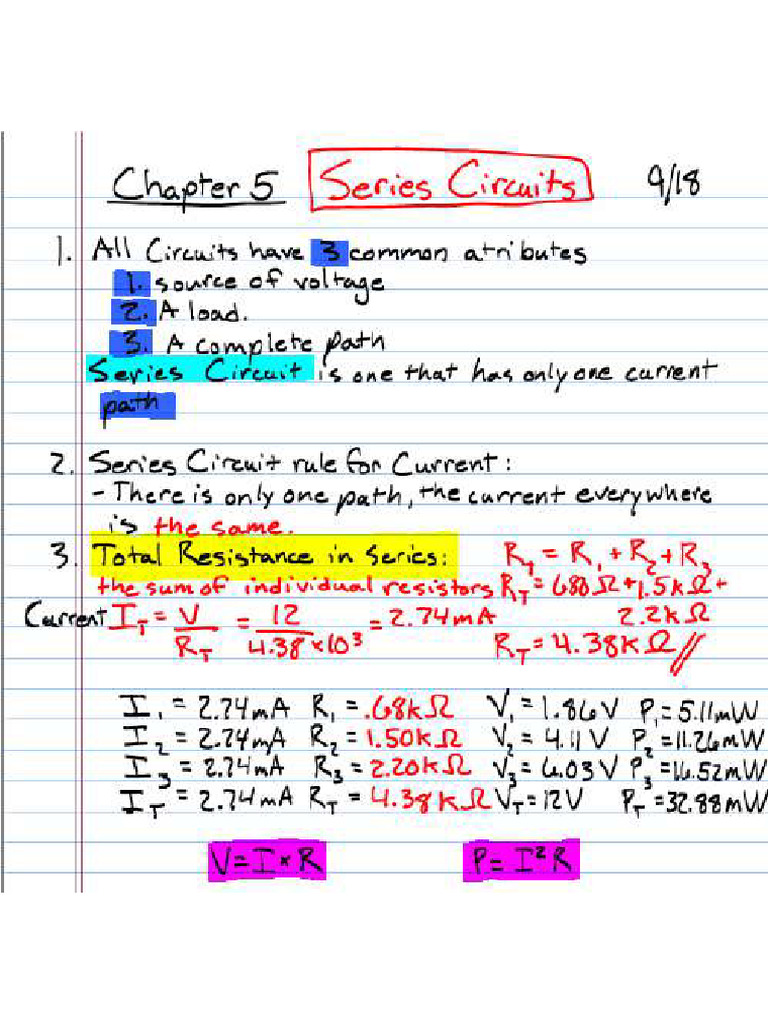 Chapter 5 Series Circuits 9/18
1. All Circuits have 3 common atributes
1. source of voltage
2. A load.
3. A complete path
Series Circuit is one that has only one current
path
2. Series Circuit rule for Current:
- There is only one path, the current everywhere
is the same.
3. Total Resistance in Series: R₁ = R₁ + R₂ + R₃
the sum of individual resistors R_T = 680Ω + 1.5kΩ +
Current I_T = V/R_T = 12/4.38×10³ = 2.74mA 2.2kΩ
R_T = 4.38kΩ //
I₁ = 2.74mA R₁ = .68kΩ V₁ = 1.86V P₁ = 5.11mW
I₂ = 2.74mA R₂ = 1.50kΩ V₂ = 4.11V P₂ = 11.26mW
I₃ = 2.74mA R₃ = 2.20kΩ V₃ = 6.03V P₃ = 16.52mW
I_T = 2.74mA R_T = 4.38kΩ V_T = 12V P_T = 32.88mW
V = I × R P = I²R